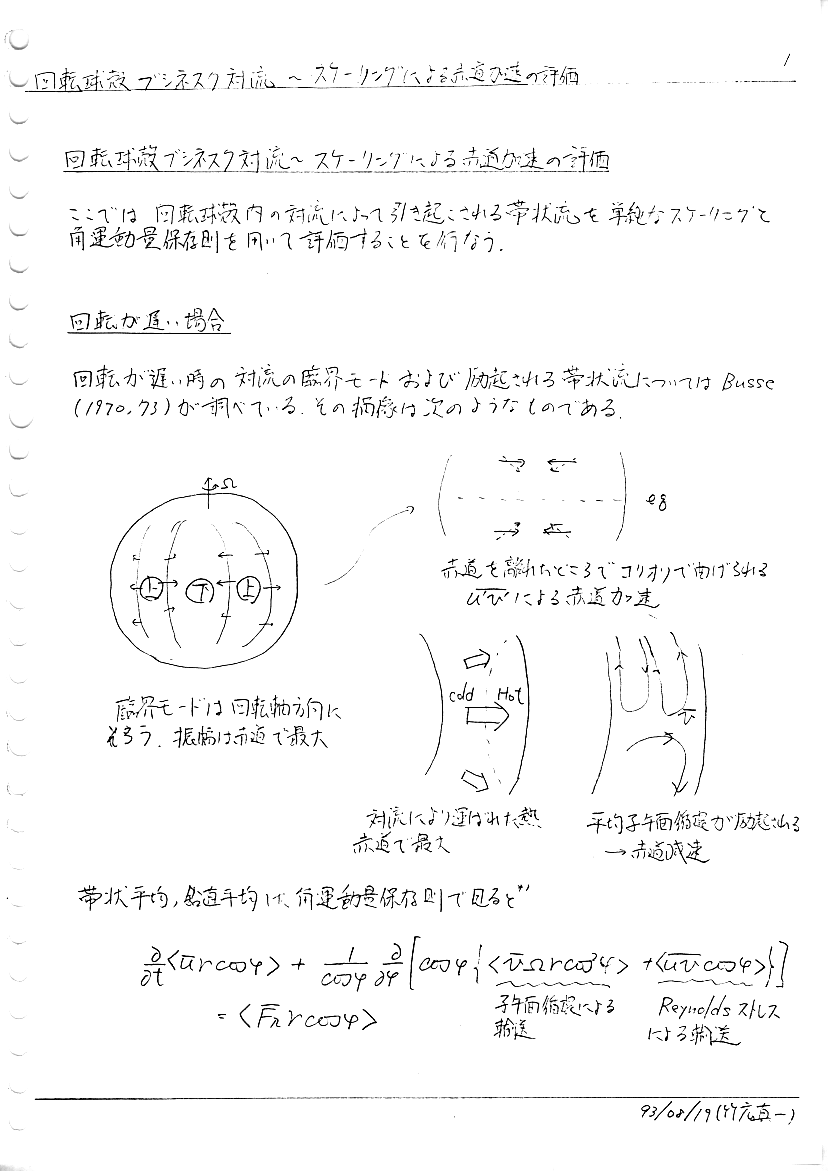 1
回転球殻 ブシネスク対流 〜 スケーリングによる赤道加速の評価
回転球殻ブシネスク対流〜 スケーリングによる赤道加速の評価
ここでは 回転球殻内の対流によって引き起こされる帯状流を 単純なスケーリングと
角運動量保存則を用いて評価することを行なう.
回転が遅い場合
回転が遅い時の 対流の臨界モードおよび励起される帯状流については Busse
(1970,73)が調べている. その描像は次のようなものである.
Ω
上 下 上
eg
赤道を離れたところでコリオリで曲げられる
u'v' による赤道加速
臨界モードは回転軸方向に
そろう. 振幅は赤道で最大
cold Hot
対流により運ばれた熱
赤道で最大
v
平均子午面循環が励起される
→ 赤道減速
帯状平均, 鉛直平均は、角運動量保存則で見ると*1
∂/∂t <ū r cosφ> + 1/cosφ ∂/∂φ [cosφ {<v̄Ωr cos²φ> + <u̅v̅ cosφ>}]
= <F̄λ r cosφ>
子午面循環による
輸送
Reynolds ストレス
による輸送
93/08/19(竹広真一)